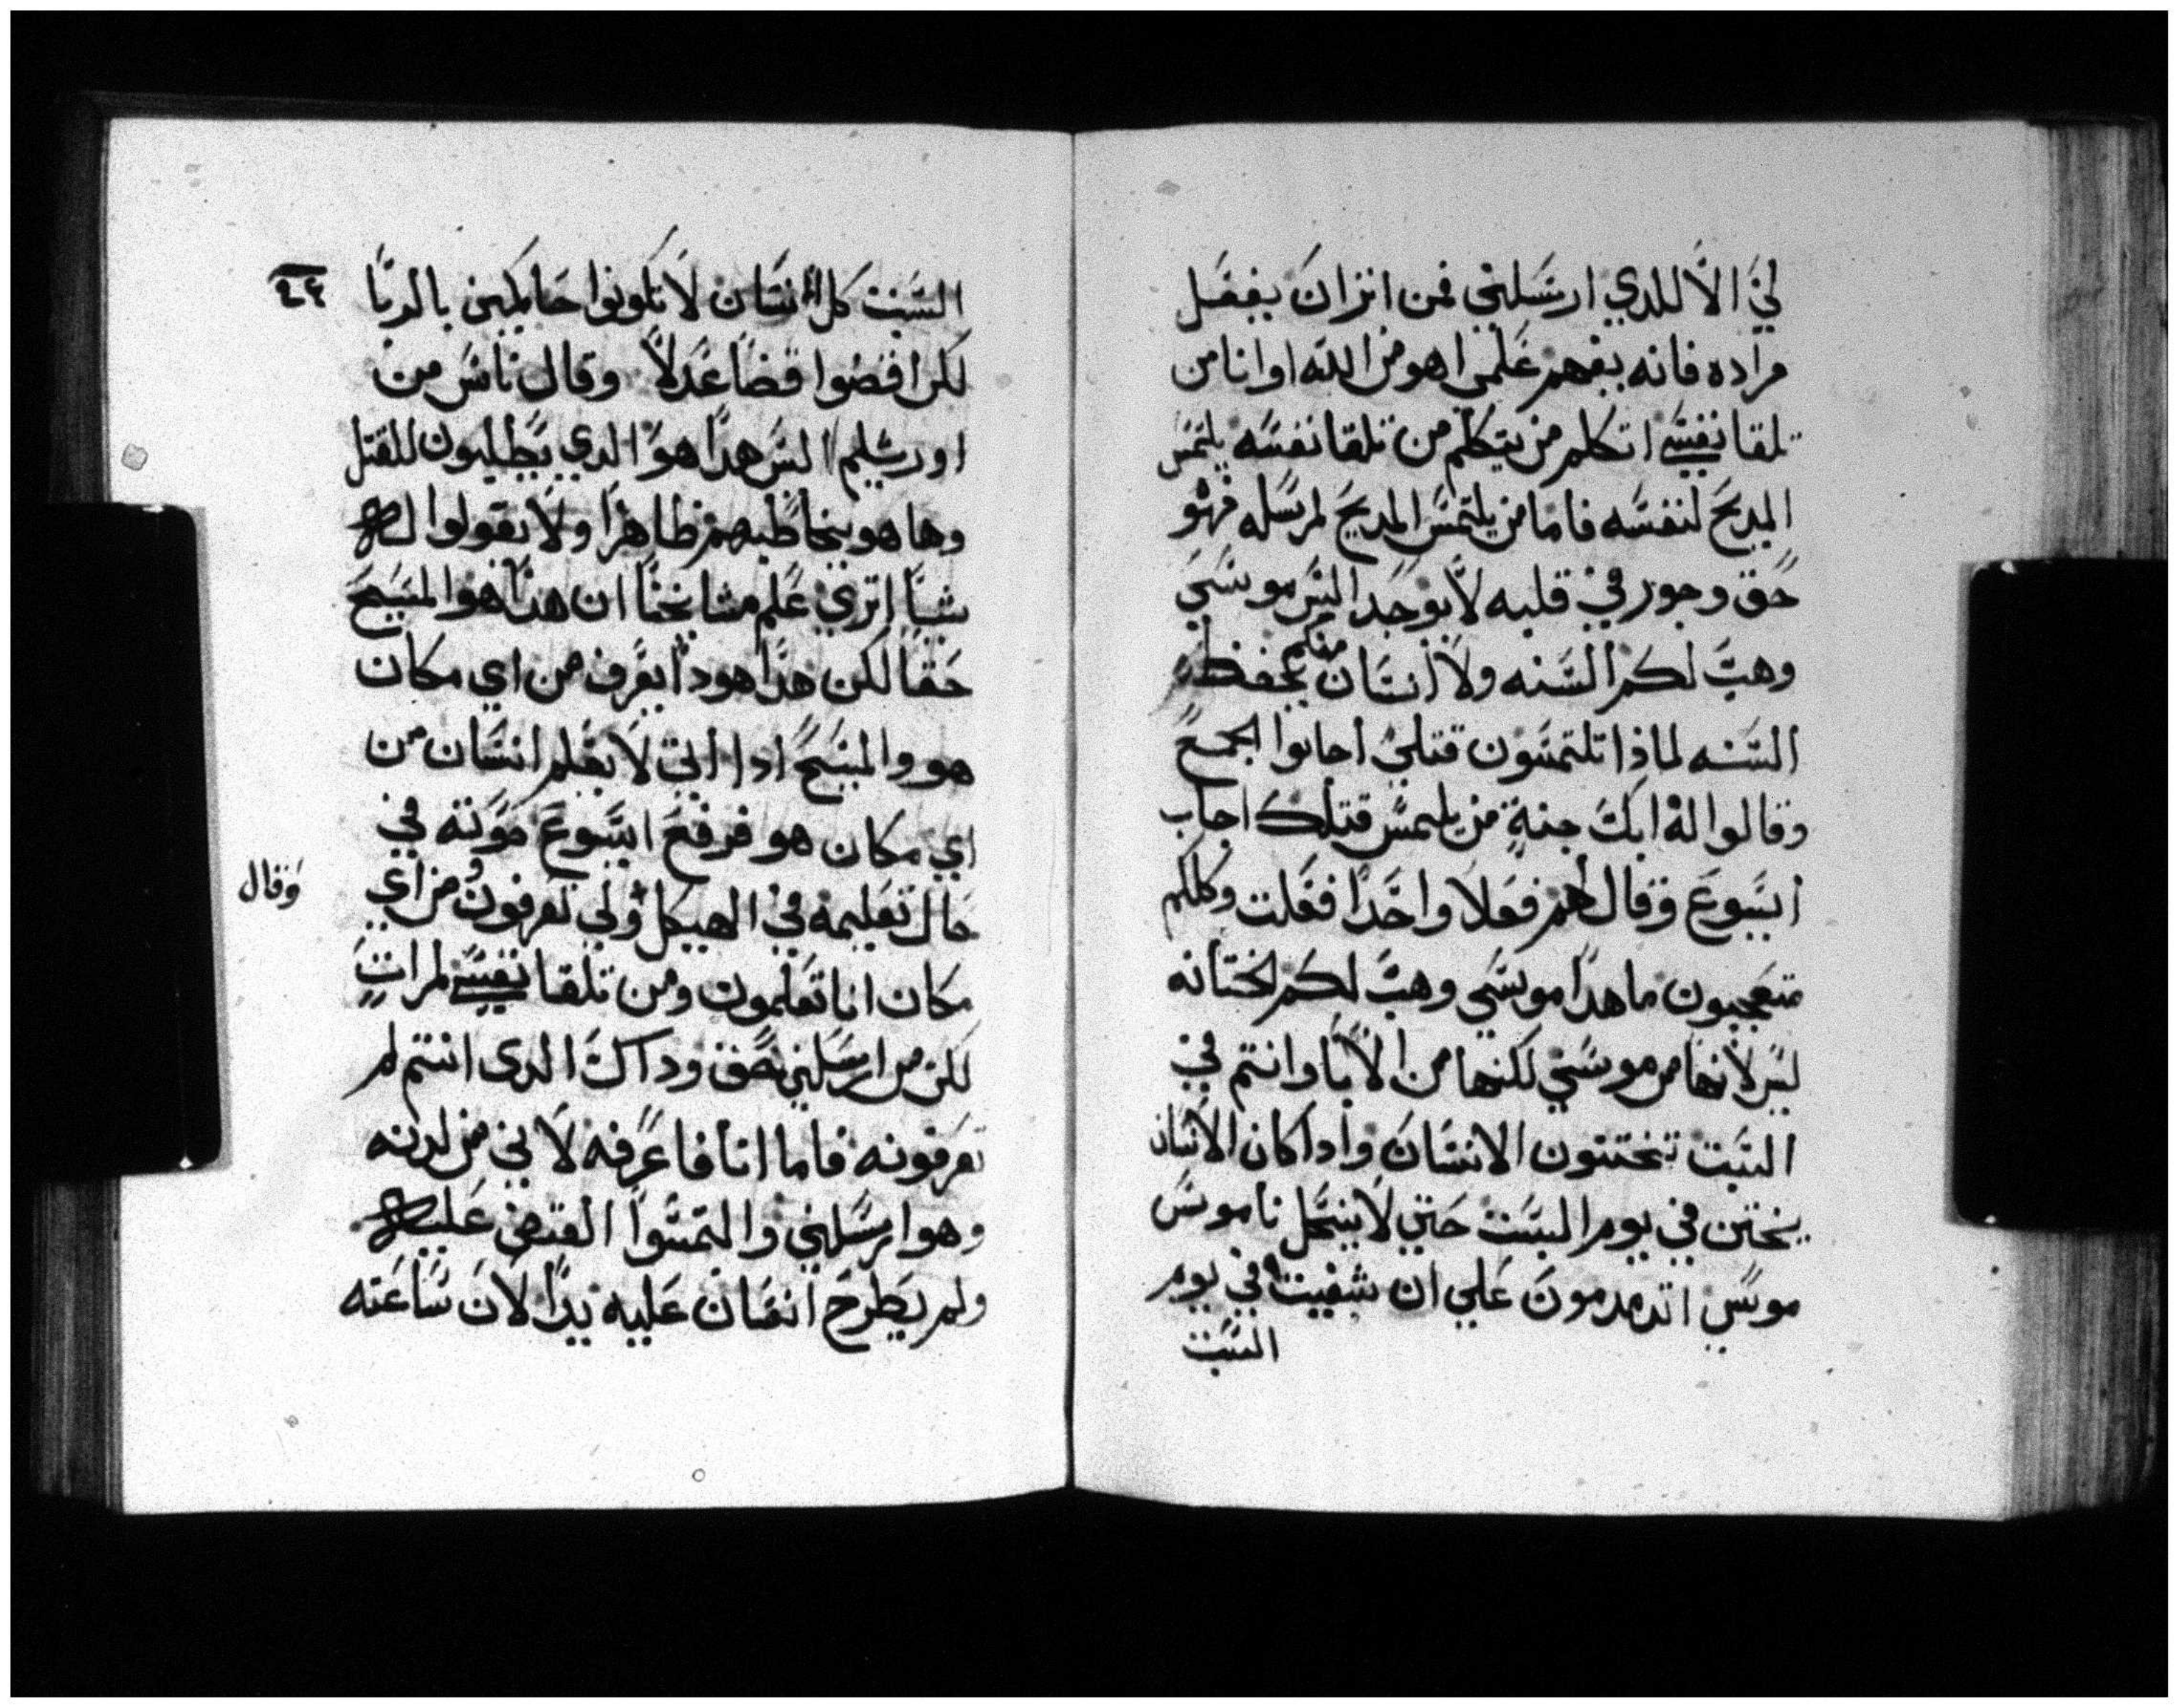 لي الا للدي ارسلني فمن اثران يفعل
مراده فانه يفهم علمي اهو من الله او انا من
تلقا نفسي اتكلم من يتكلم من تلقا نفسه يلتمس
المديح لنفسه فاما من يلتمس المديح لمرسله فهو
حق وجور في قلبه لا يوجد اليس موسي
وهب لكم السنه ولا انسان منكم يحفظ
السنه لماذا تلتمسون قتلي اجابوا الجمع
وقالوا له ابك جنة من يلتمس قتلك اجاب
ايسوع وقال لهم فعلا واحدا فعلت وكلكم
متعجبون ما هدا موسي وهب لكم الختانه
ليس لانها من موسي لكنها من الابا وانتم في
السبت تختنون الانسان وادا كان الانسان
يختن في يوم السبت حتي لا ينحل ناموس
موسي اتدمدمون علي ان شفيت في يوم
السبت
السبت كل انسان لا تكونوا حاكمين بالريا
لكن اقضوا قضا عدلا وقال ناس من
اورشليم اليس هدا هو الدي يطلبون للقتل
وها هو يخاطبهم ظاهرا ولا يقولوا له
شيا اتري علم مشايخنا ان هدا هو المسيح
حقا لكن هدا هودا يعرف من اي مكان
هو والمسيح ادا اتي لا يعلم انسان من
اي مكان هو فرفع ايسوع صوته في
حال تعليمه في الهيكل وقال
ولي تعرفون من اي
مكان انا تعلمون ومن تلقا نفسي لم ات
لكن من ارسلني بحق وداك الدي انتم لم
تعرفونه فاما انا فاعرفه لاني من لدنه
وهو ارسلني والتمسوا القبض عليه
ولم يطرح انسان عليه يدا لان ساعته